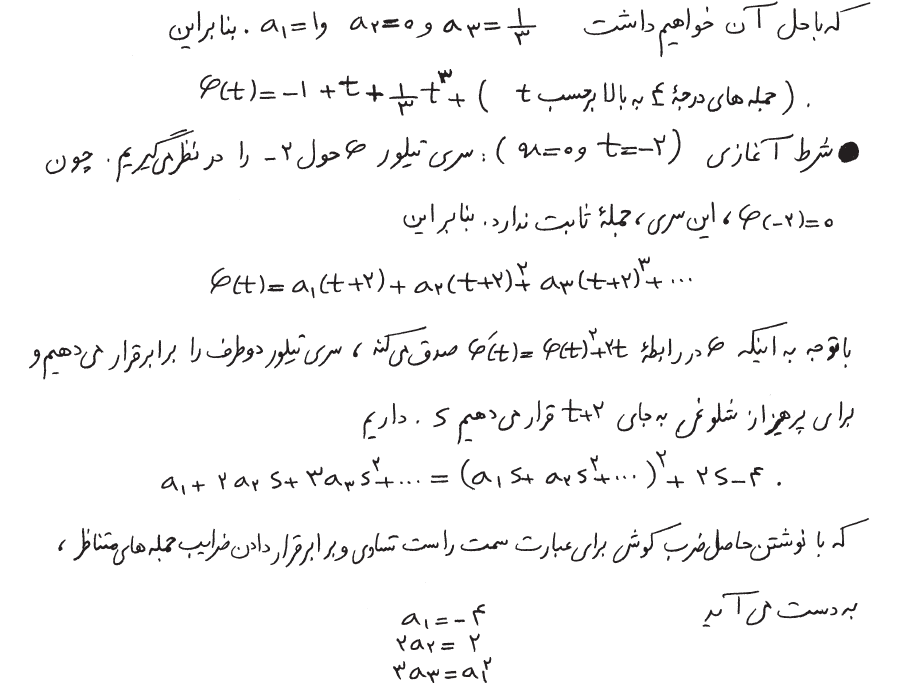 که با حل آن خواهیم داشت a₃=۱/۳ و a₂=۰ و a₁=۱. بنابراین
φ(t)=-۱+t+۱/۳ t³+ (جمله‌های درجهٔ ۴ به بالا برحسب t).
● شرط آغازی (t=-۲ و x=۰): سری تیلور φ حول ۲- را در نظر می‌گیریم. چون
φ(-۲)=۰، این سری، جملهٔ ثابت ندارد. بنابراین
φ(t)=a₁(t+۲)+a₂(t+۲)²+a₃(t+۲)³+...
با توجه به اینکه φ در رابطهٔ φ′(t)=φ(t)²+۲t صدق می‌کند، سری تیلور دو طرف را برابر قرار می‌دهیم و
برای پرهیز از شلوغی به جای t+۲ قرار می‌دهیم s. داریم
a₁+۲a₂s+۳a₃s²+...=(a₁s+a₂s²+...)²+۲s-۴.
که با نوشتن حاصل‌ضرب کوشی برای عبارت سمت راست تساوی و برابر قرار دادن ضرایب جمله‌های متناظر،
به دست می‌آید
a₁=-۴
۲a₂=۲
۳a₃=a₁²